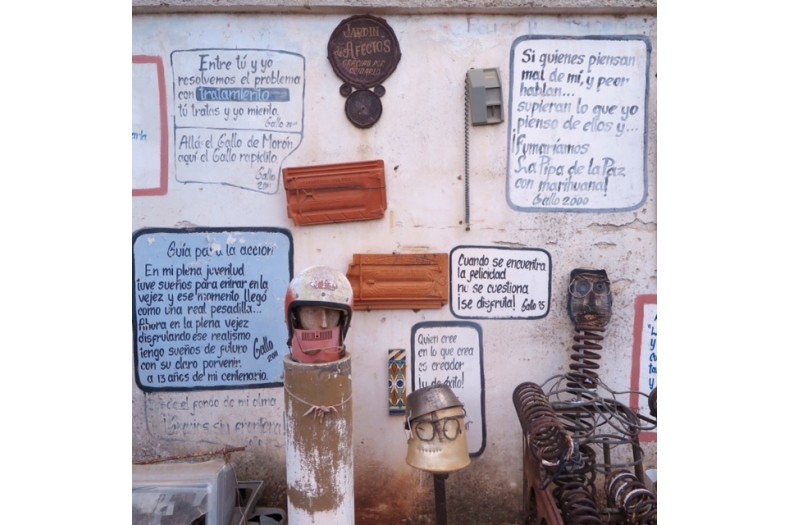 Entre tú y yo
resolvemos el problema
con tratamiento
tú tratas y yo miento.
Gallo
Allá: el Gallo de Morón
aquí el Gallo rapidito
Gallo
JARDIN
de AFECTOS
Si quienes piensan
mal de mí, y peor
hablan...
supieran lo que yo
pienso de ellos y...
¡Fumaríamos
La Pipa de la Paz
con marihuana!
Gallo 2000
Guía para la acción
En mi plena juventud
tuve sueños para entrar en la
vejez y ese momento llegó
como una real pesadilla...
Ahora en la plena vejez
disfrutando ese realismo
tengo sueños de futuro
con su claro porvenir
a 13 años de mi centenario.
Gallo
de el fondo de mi alma
Cuando se encuentra
la felicidad
no se cuestiona
¡se disfruta! Gallo
Quien cree
en lo que crea
es creador